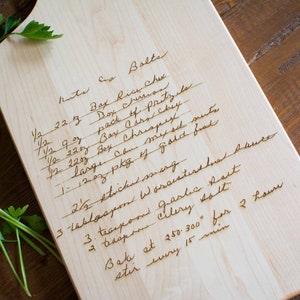 Nuts & Bolts
1/2 22 oz Box Rice Chex
1 Box Cheerios
1/2 9 oz pkg of Pretzels
1/2 22 oz Box Chex
1/2 22 oz Box Crispix
1 large can mixed nuts
1- 12 oz pkg of Gold
2 1/2 sticks marg
3 tablespoon Worcestershire Sauce
3 teaspoon garlic salt
2 teaspoon Celery Salt
Bake at 250-300° for 2 hours
stir every 15 min